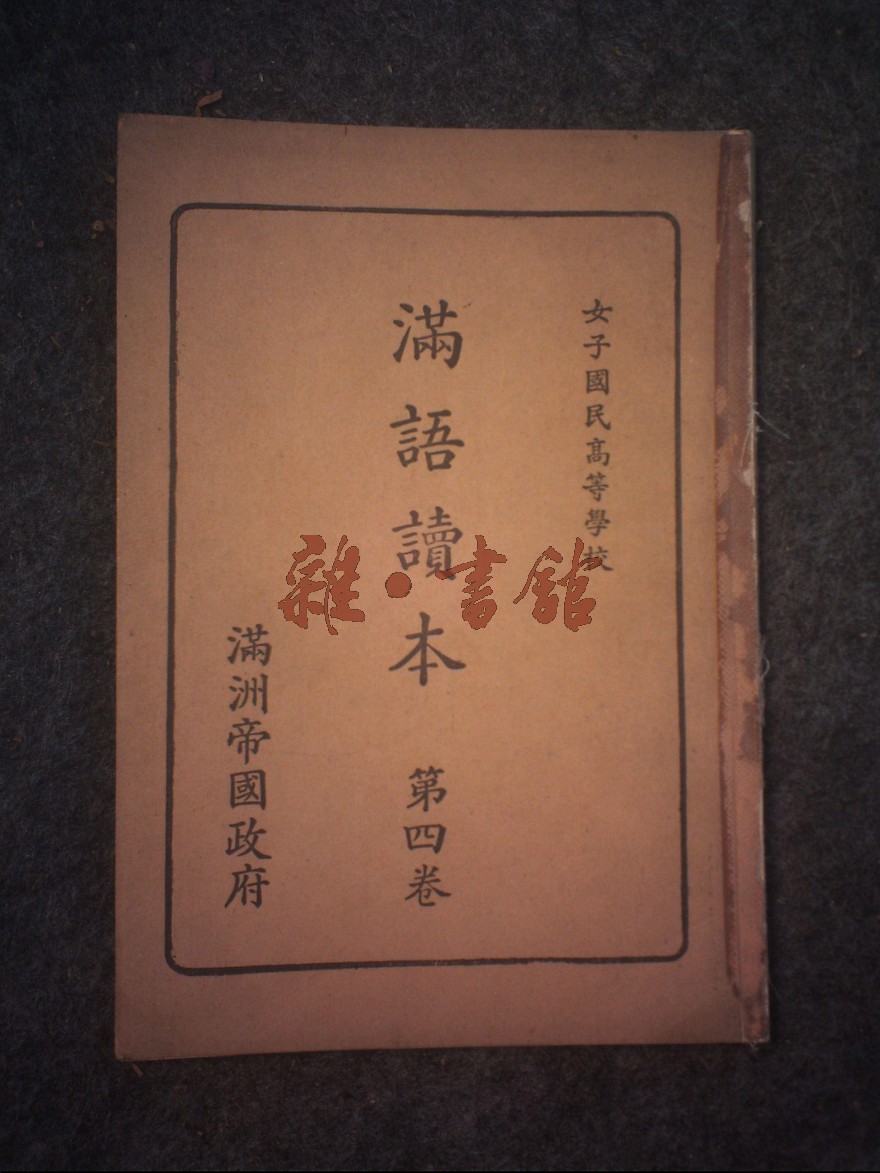 女子國民高等學校
滿語讀本 第四卷
滿洲帝國政府
雜·書館